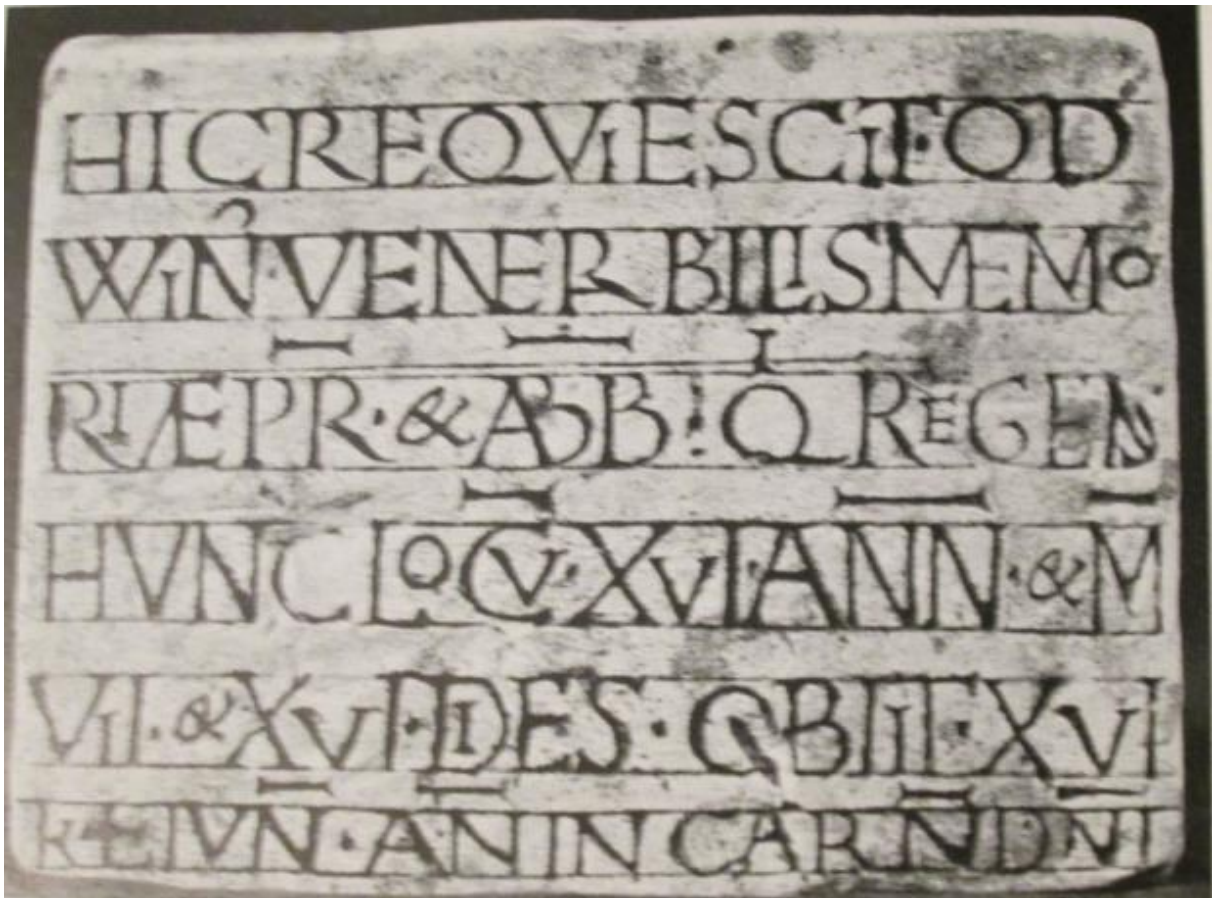 HIC REQVIESCIT · OD
WIN̉ · VENERBILIS MEMO
RIÆ PR · & ABB Q REGEN̄
HVNC LOCV̄ · XVI · ANN̄ · & M̄
VII · & XVI · DIES · OBIIT · XVI
KL̄ IVN̄ · AN IN CARN̄ DN̄I